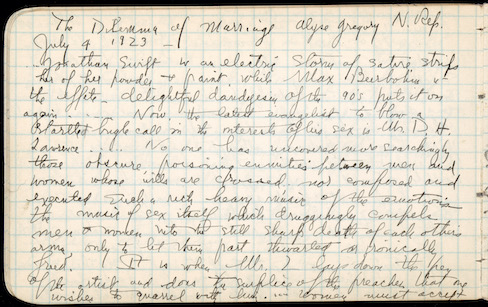 The Dilemma of Marriage Alyse Gregory N. Rep.
July 4 1923 —
... Jonathan Swift in an electric storm of satire strips
her of her powder & paint, while Max Beerbohm in
the effete, delightful dandyism of the 90's puts it on
again .... Now the latest evangelist to blow a
startled bugle call in the interests of his sex is Mr. D. H.
Lawrence .... No one has uncovered more searchingly
those obscure poisoning enmities between men and
women whose wills are crossed, nor composed and
executed such a rich heavy music of the emotions
the music of sex itself which druggingly compels
men & women into the still sharp death of each others
arms, only to let them part thwarted or ironically
freed. It is when Mr. L lays down the
of the artist and dons the surplice of the preacher that one
wishes to quarrel with him ... women must